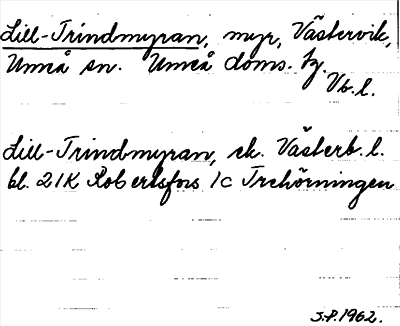 Lill-Trindmyran, myr, Västervik,
Umeå sn. Umeå doms. tg.
Vb. l.
Lill-Trindmyran, ek. Västerb. l.
bl. 21K Robertsfors 1c Trehörningen
S.P. 1962.